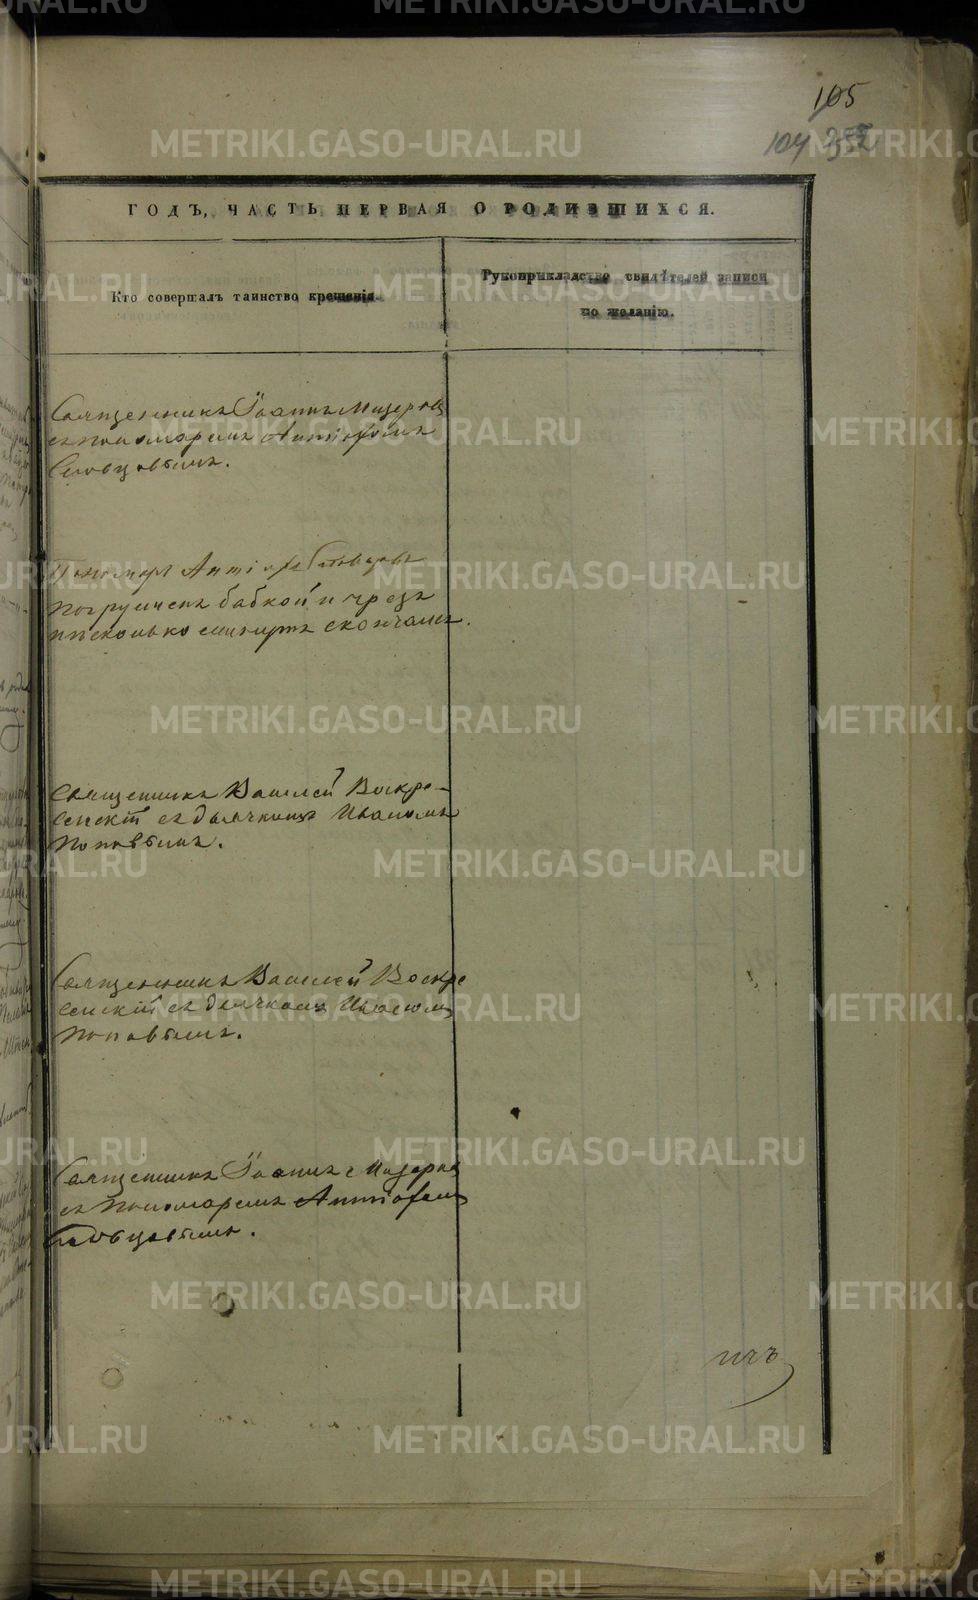 105
104
ГОДЪ, ЧАСТЬ ПЕРВАЯ О РОДИВШИХСЯ.
Кто совершалъ таинство крещенія.
Рукоприкладство свидѣтелей записи
по желанію.
Священникъ Іоаннъ Мизеровъ
съ пономаремъ Антіофомъ
Словцовымъ.
Пономарь
погруженъ бабкой и чрезъ
нѣсколько минутъ скончался.
Священникъ Василей Воскре-
сенскій съ дьячкомъ Иваномъ
Поповымъ.
Священникъ Василей Воскре
сенскій съ дьячкомъ Иваномъ
Поповымъ.
Священникъ Іоаннъ Мизеровъ
съ пономаремъ Антіофомъ
Словцовымъ.
METRIKI.GASO-URAL.RU